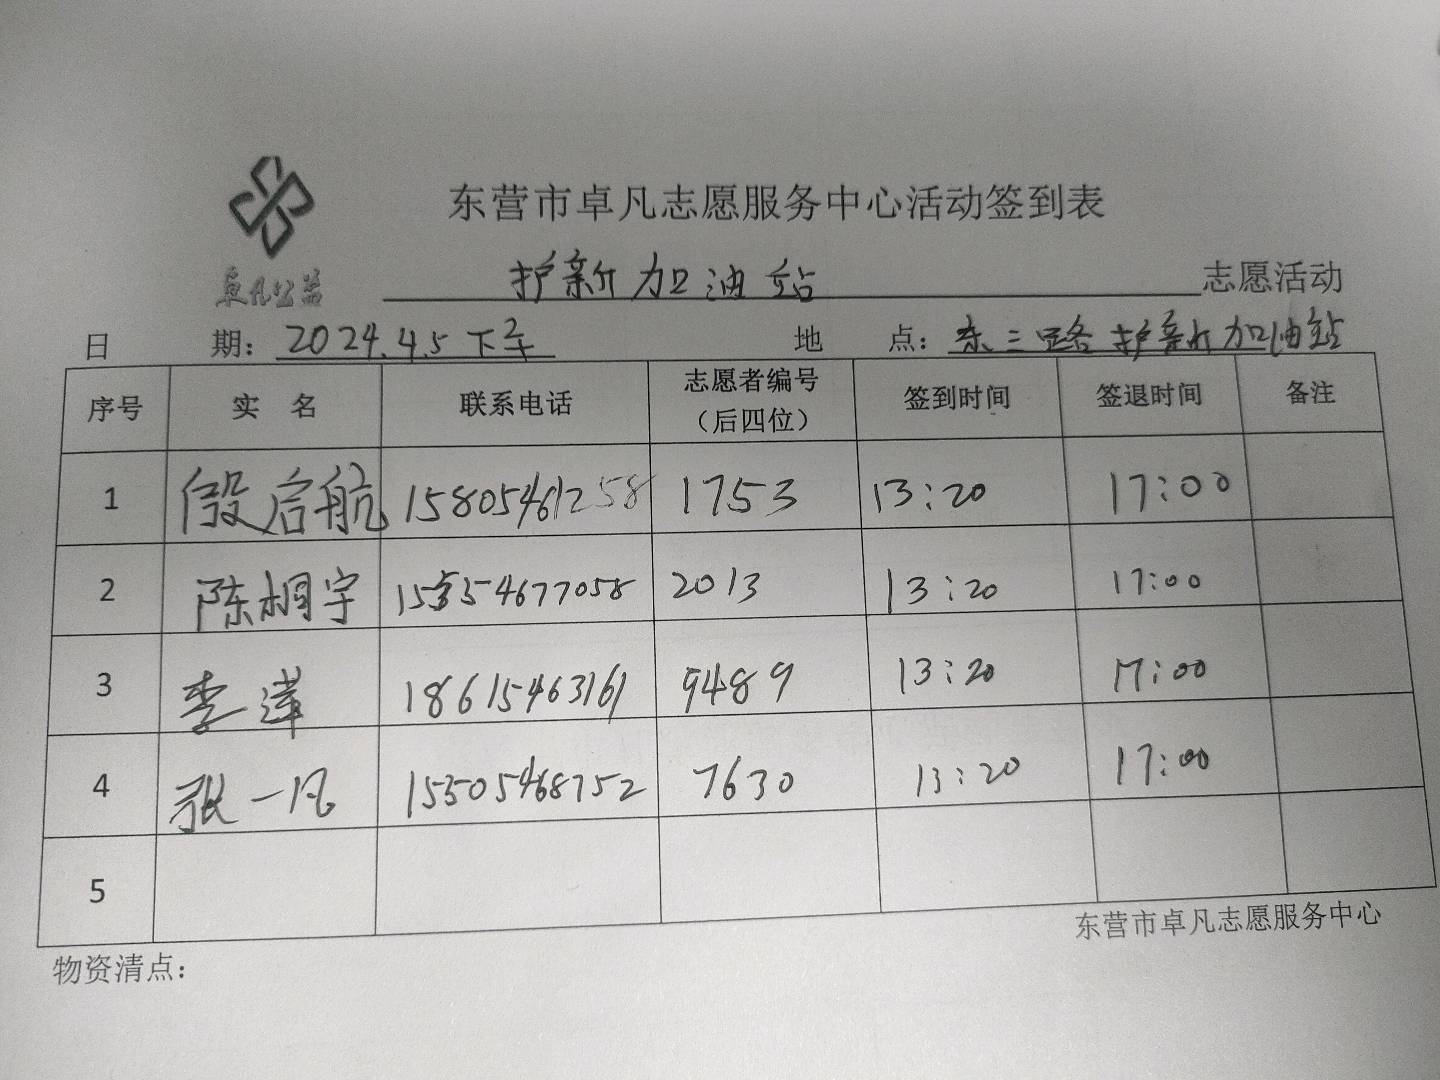 东营市卓凡志愿服务中心活动签到表
卓凡公益
护新加油站 志愿活动
日 期：2024.4.5 下午 地 点：东三路护新加油站
序号 实 名 联系电话 志愿者编号（后四位） 签到时间 签退时间 备注
1 段启航 15805461258 1753 13:20 17:00
2 陈桐宇 15554677058 2013 13:20 17:00
3 李 18615463161 9489 13:20 17:00
4 张一凡 15505468752 7630 13:20 17:00
5
东营市卓凡志愿服务中心
物资清点：